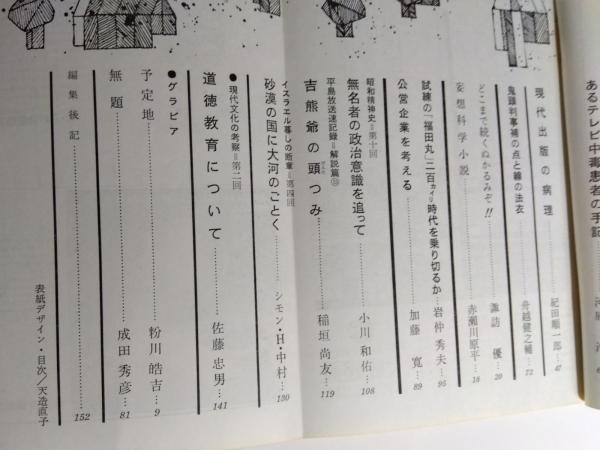 あるテレビ中毒患者の手記
現代出版の病理……紀田順一郎…47
鬼頭判事補の点と線の法衣……舟越健之輔…72
どこまで続くぬかるみぞ!!……諏訪 優…20
妄想科学小説……赤瀬川原平…18
試練の「福田丸」二百カイリ時代を乗り切るか…岩仲秀夫…95
公営企業を考える……加藤 寛…89
昭和精神史=第十回
無名者の政治意識を追って……小川和佑…108
平島放送速記録=解説篇⑬
吉熊爺の頭つみ……稲垣尚友…119
イスラエル暮しの断章=第四回
砂漠の国に大河のごとく……シモン・H・中村…130
●現代文化の考察=第二回
道徳教育について……佐藤忠男…141
●グラビア
予定地……粉川皓吉…9
無題……成田秀彦…81
編集後記……152
表紙デザイン・目次/天造直子